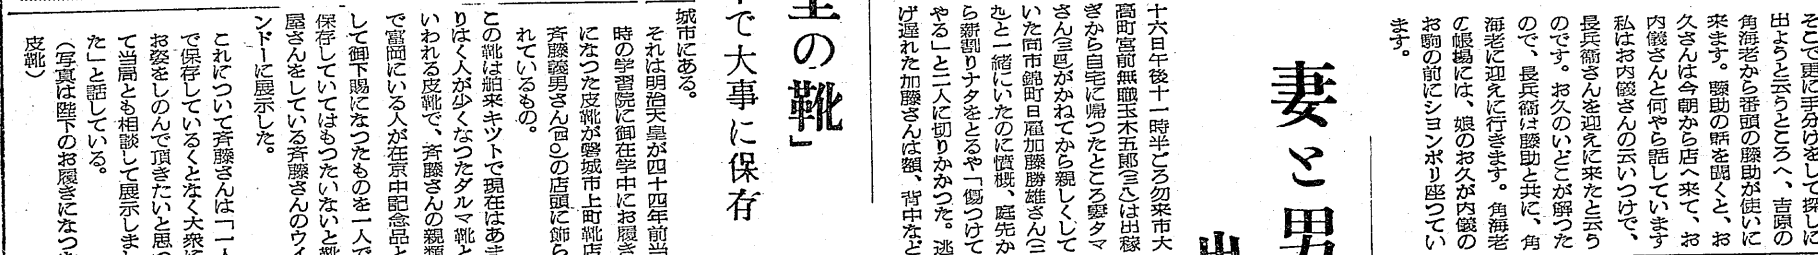 そこで更に手分けをして探しに
出ようと云うところへ、吉原の
角海老から番頭の藤助が使いに
来ます。藤助の話を聞くと、お
久さんは今朝から店へ来て、お
内儀さんと何やら話しています
私はお内儀さんの云いつけで、
長兵衛さんを迎えに来たと云う
のです。お久のいどこが解つた
ので、長兵衛は藤助と共に、角
海老に迎えに行きます。角海老
の帳場には、娘のお久が内儀の
お駒の前にションボリ座つてい
ます。
妻と男
出
十六日午後十一時半ごろ勿来市大
高町宮前無職玉木五郎(三八)は出稼
ぎから自宅に帰つたところ妻タマ
さん(三四)がかねてから親しくして
いた同市錦町日雇加藤勝雄さん(三
九)と一緒にいたのに憤慨、庭先か
ら薪割りナタをとるや「傷つけて
やる」と二人に切りかかつた。逃
げ遅れた加藤さんは額、背中など
の靴」
で大事に保存
城市にある。
それは明治天皇が四十四年前当
時の学習院に御在学中にお履き
になつた皮靴が磐城市上町靴店
斉藤義男さん(四〇)の店頭に飾ら
れているもの。
この靴は舶来キツトで現在はあま
りはく人が少くなつたダルマ靴と
いわれる皮靴で、斉藤さんの親類
で富岡にいる人が在京中記念品と
して御下賜になつたものを一人で
保存していてはもつたいないと靴
屋さんをしている斉藤さんのウイ
ンドーに展示した。
これについて斉藤さんは「一人
で保存しているくとなく大衆に
お姿をしのんで頂きたいと思つ
て当局とも相談して展示しまし
た」と話している。
(写真は陛下のお履きになつた
皮靴)